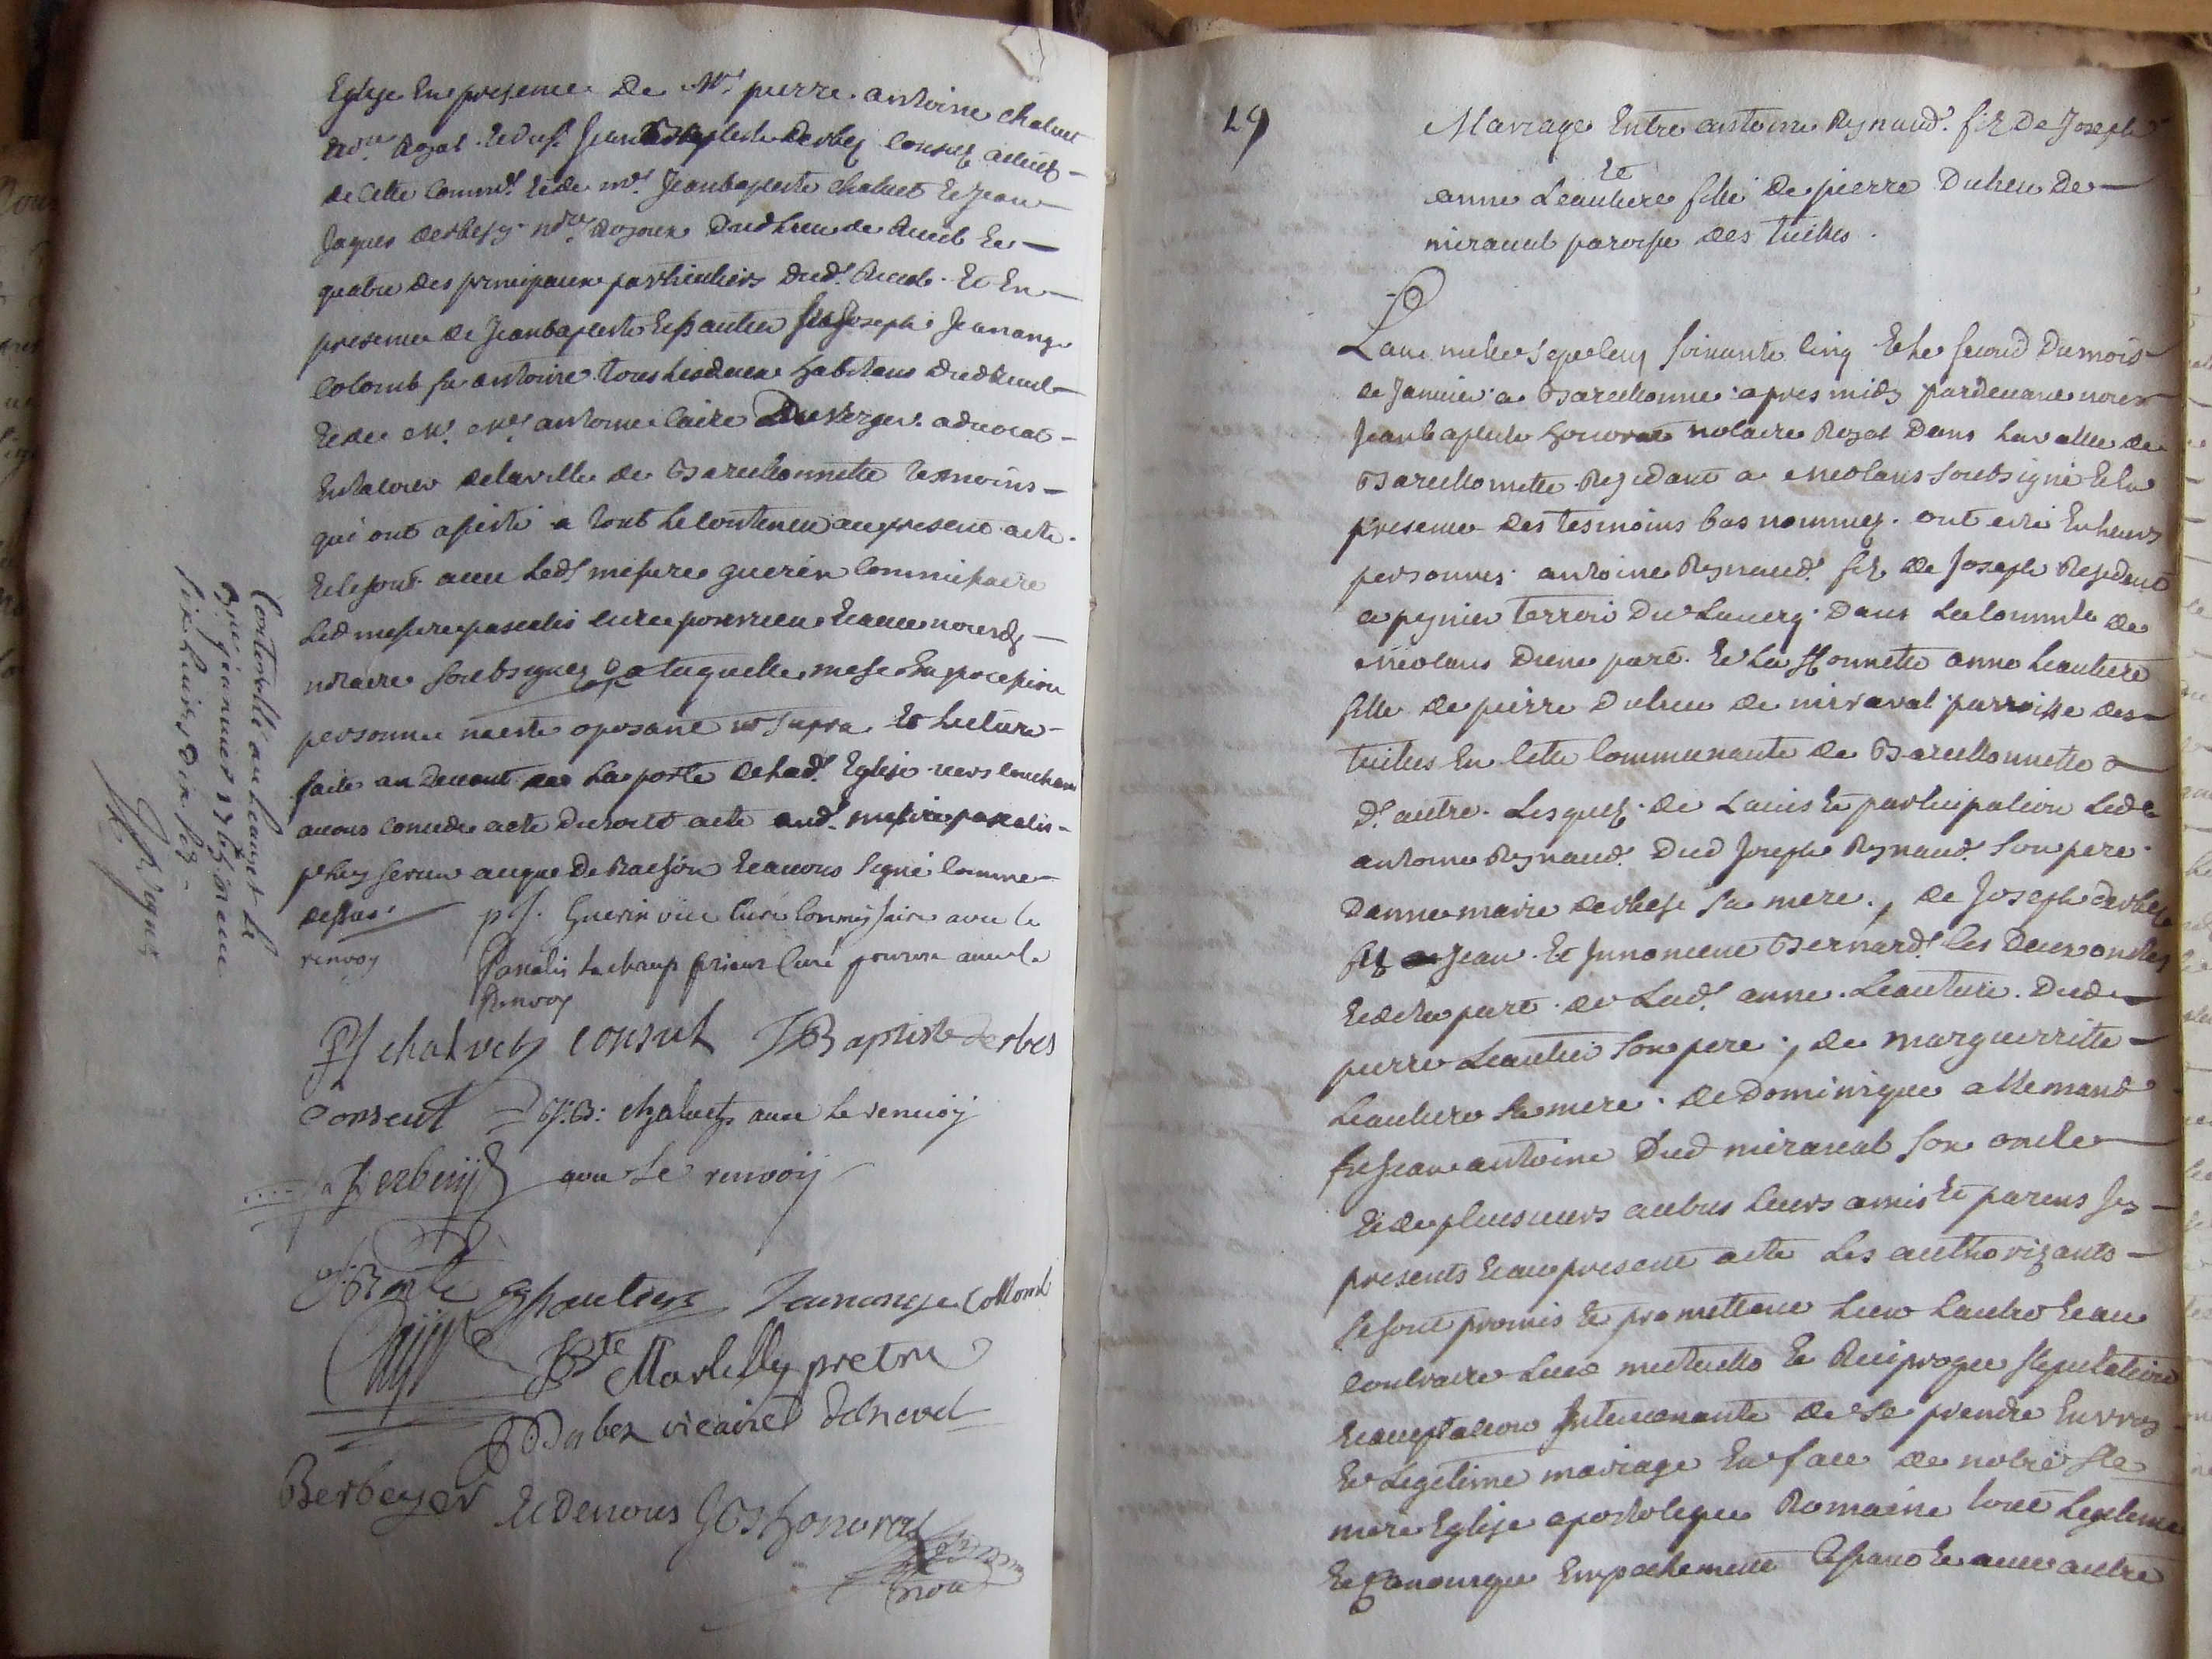 Eglise En presence de Mre pierre antoine chaluet
Royal Jean Baptiste derbes Consuls
de Cette Commté Et de mre Jeanbaptiste chaluet Et Jean
Jaques derbesy nre Royaux Dud lieu de Reuel Et
quatre des principaux particuliers dud. Reuel. Et En
presence de Jeanbaptiste Espautier feu Joseph Jeanange
Colomb feu antoine tous les deux habitans dud Reuel
Et de mr mre antoine Caire Duverger advocat
de la ville de Barcellonnette tesmoins
qui ont assisté a tout le Contenu au present acte
Et le sont avec led messire guerin Commissaire
Led messire pascalis Curé pourveu Et avec nousd
notaire soubsignez a laquelle mise En possession
personne n'a esté oposant ut supra Et lecture
faite au Devant de la porte de lad. Eglise
avons Concedé acte aud. messire pascalis
pr luy servir auque De Raison Et avons signé Comme
dessus
renvoy
pf. Guerin vice Curé Commissaire avec le
Pascalis prieur Curé pourvu avec le
Renvoy
PA chalvet consul JBaptiste derbes
Conseul J:B: chaluet avec le renvoy
JJ derbesy avec le renvoij
JBapte Espautier Jeanange Collomb
Caire JBte Marlilly pretre
Daber vicaire de Revel
Berbeyer Et de nous JBs honorat
nore
Controllé au Lauzet le
9me januier 1765 receu
six livres dix sols
29
Mariage Entre antoine Reynaud. fils De Joseph
Et
anne Leautiere fille De pierre Du lieu De
miraval paroisse des tuiles.
L'an mille sept cens soixante Cinq Et le second Du mois
de Januier a Barcellonne apres midy pardevant nous
Jeanbaptiste honorat notaire Royal Dans la vallee de
Barcellonnette Residant a meolans soubsigné Et En
presence des tesmoins bas nommez. ont esté En leurs
personnes antoine Reynaud. fils de Joseph Residant
a peynier terroir Du Laverq Dans la Commté de
meolans D'une part. Et La Honnette anne leautiere
fille de pierre Du lieu de miraval parroisse des
tuiles En Cette Communauté de Barcellonnette
D'autre. Lesquels de L'avis Et participation Led
antoine Reynaud. Dud Joseph Reynaud. son pere
D'anne marie derbese sa mere, de Joseph derbese
fils Jean. Et Innoncent Bernard. ses Deux oncles
Et de la part de Lad. anne Leautiere. Dud
pierre Leautier son pere, de marguerritte
Leautiere sa mere. de Dominique allemand
feu Jean antoine Dud miraval son oncle
Et de plusieurs autres leurs amis Et parens Icy
presents Et au present acte les authorizants
se sont promis Et promettent L'un L'autre Et au
Contraire sous mutuelle Et Reciproque stipulation
Et acceptation Intervenante de se prendre En vray
Et Legitime mariage En face de notre Ste
mere Eglise apostolique Romaine tout legitime
Et Canonique Empechement Cessant Et avec autre